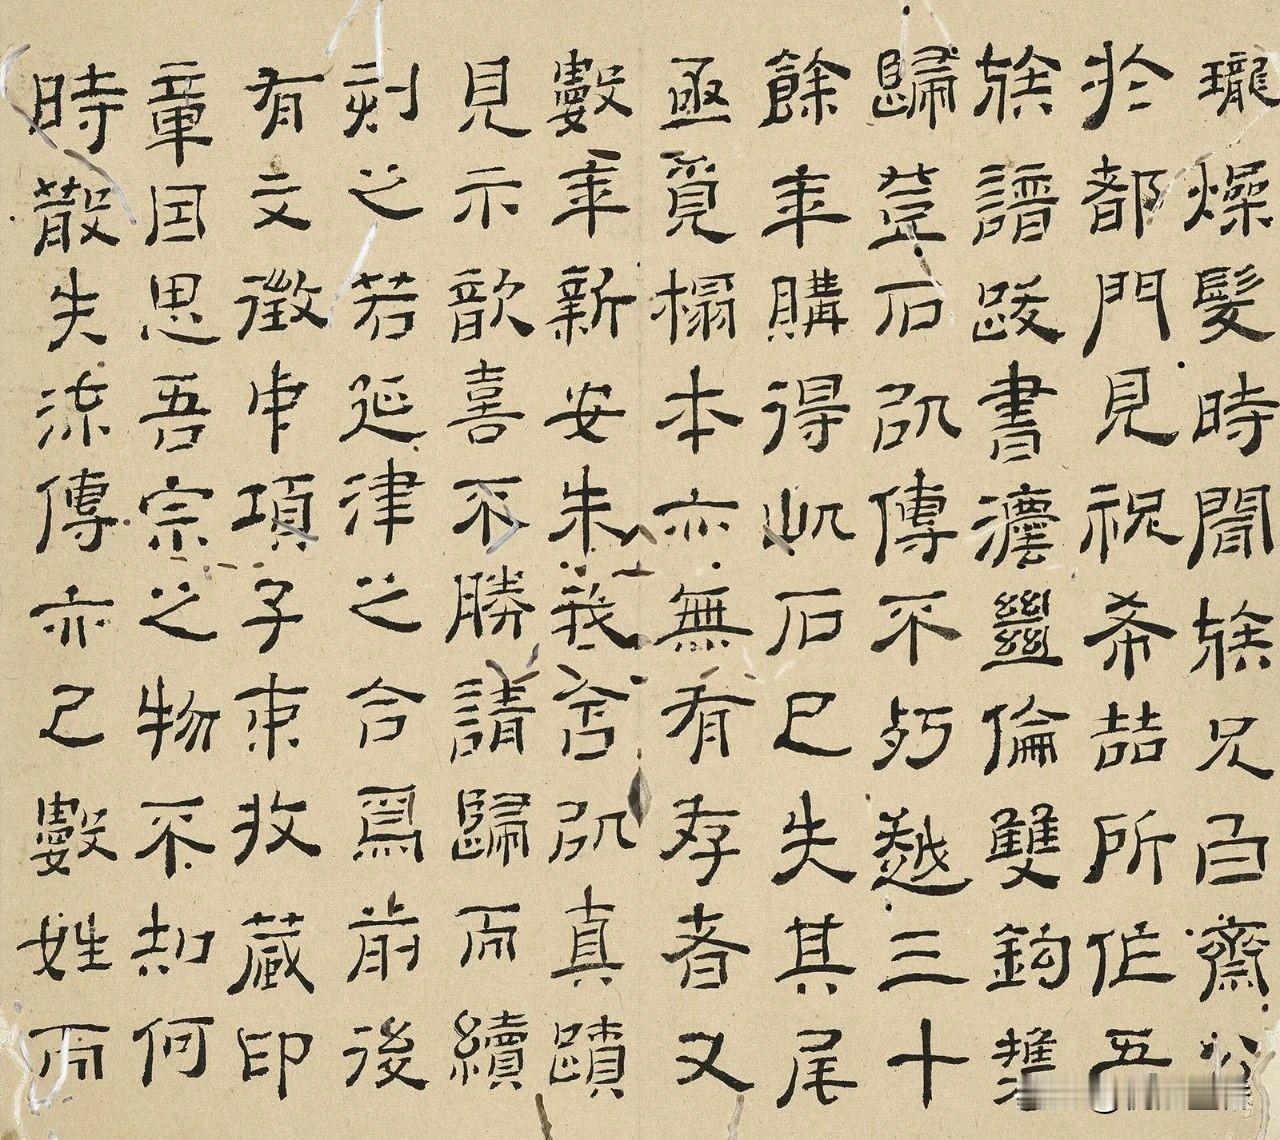 瓏燥髮時聞族兄白齋公
於都門見祝希喆所作五
族譜跋書灋𢇍倫雙鉤携
歸登石以傳不朽越三十
餘年購得此石已失其尾
亟覓榻本亦無有存者又
數年新安朱我兮以真蹟
見示歆喜不勝請歸而續
刻之若延津之合焉前後
有文徵中項子京收藏印
章因思吾宗之物不知何
時散失流傳亦已數姓而